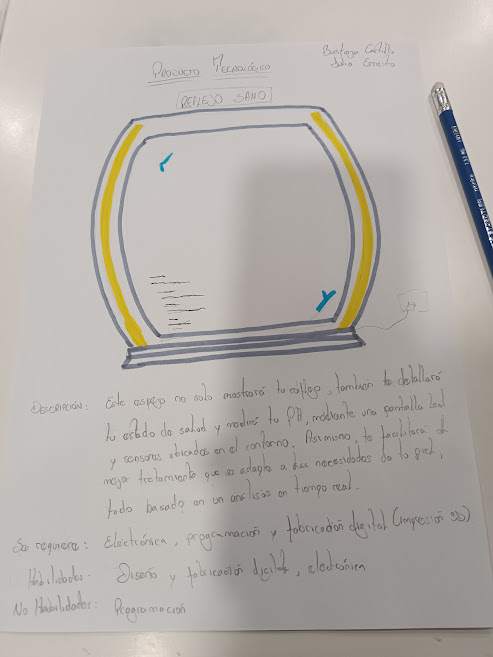 Producto Tecnológico
Bustinza Castillo
Julio Ernesto
REFLEJO SANO
Descripción: Este espejo no solo mostrará tu reflejo, también te detallará
tu estado de salud y medirá tu PH, mediante una pantalla led
y sensores ubicados en el contorno. Asimismo, te facilitara el
mejor tratamiento que se adapte a las necesidades de tu piel,
todo basado en un análisis en tiempo real.
Se requiere: Electrónica, programación y fabricación digital (impresión 3D)
Habilidades: Diseño y fabricación digital, electrónica
No Habilidades: Programación